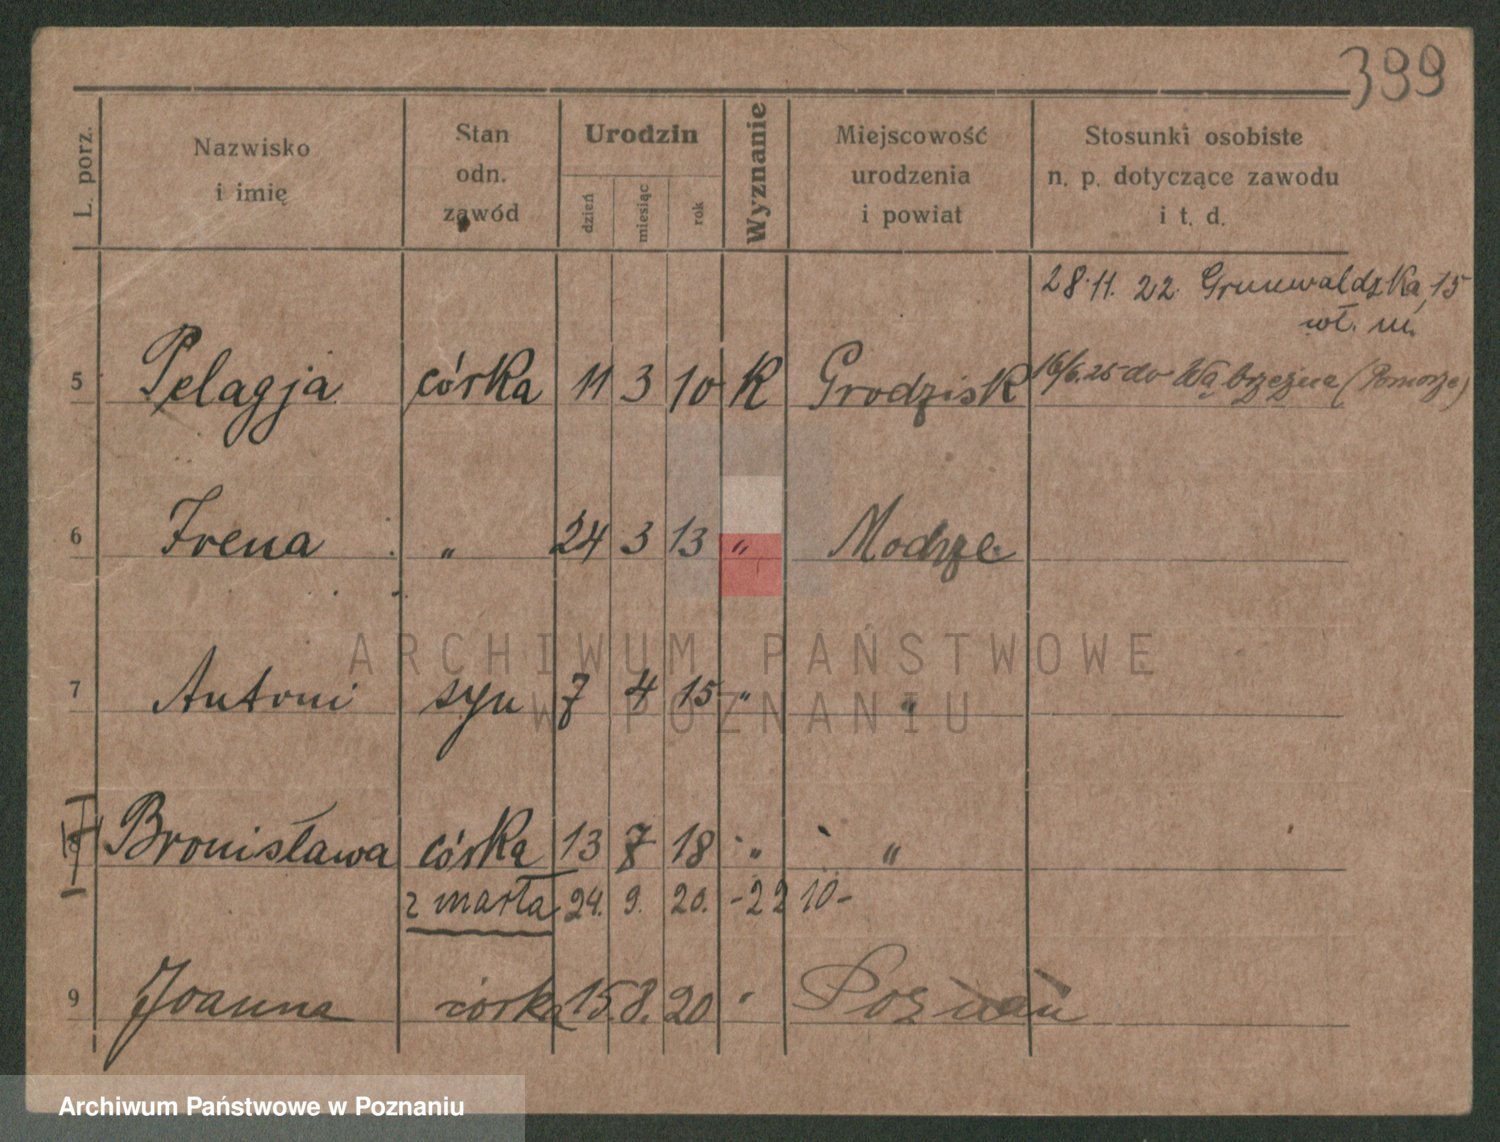 399
L. porz.
Nazwisko
i imię
Stan
odn.
zawód
Urodzin
dzień
miesiąc
rok
Wyznanie
Miejscowość
urodzenia
i powiat
Stosunki osobiste
n. p. dotyczące zawodu
i t. d.
28.11.22 Grunwaldzka 15
wł. m.
5 Pelagja córka 11 3 10 K Grodzisk 16/6.25 do Wąbrzeźna (Pomorze)
6 Irena " 24 3 13 " Modrze
ARCHIWUM PAŃSTWOWE
7 Antoni syn 7 4 15 " "
W POZNANIU
8 Bronisława córka 13 7 18 " "
zmarła 24. 9. 20. -22 10-
9 Joanna córka 15. 8. 20 " Poznań
Archiwum Państwowe w Poznaniu